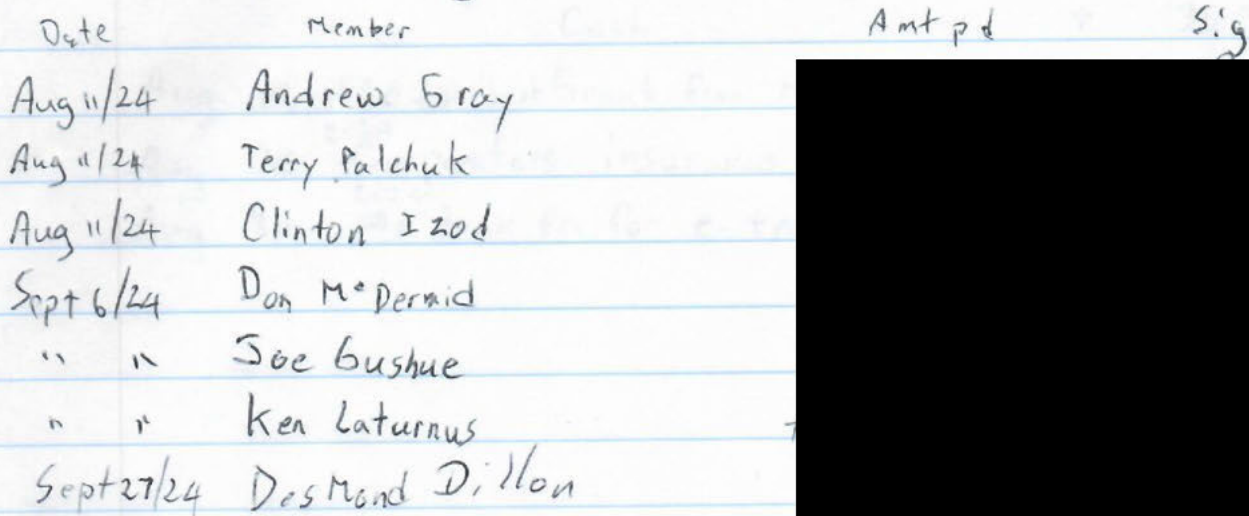 Date Member Amt pd Sig
Aug 11/24 Andrew Gray
Aug 11/24 Terry Palchuk
Aug 11/24 Clinton Izod
Sept 6/24 Don McDermid
" " Joe Gushue
" " Ken Laturnus
Sept 27/24 Desmond Dillon